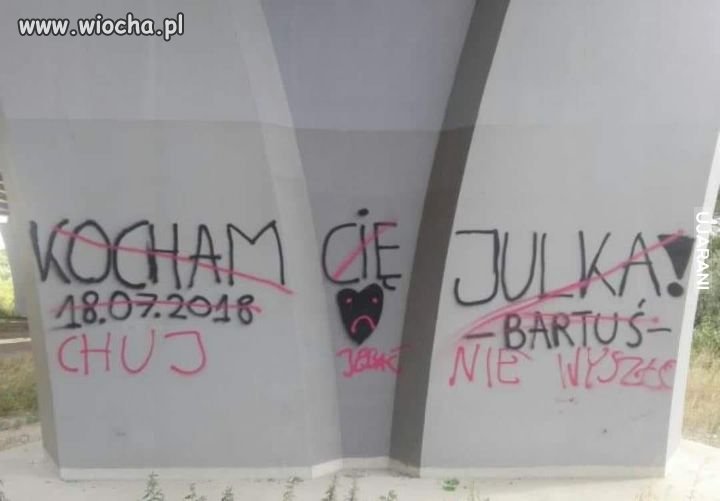 www.wiocha.pl
UJARANI
KOCHAM CIĘ JULKA!
18.07.2018
- BARTUŚ -
CHUJ JEBAĆ NIE